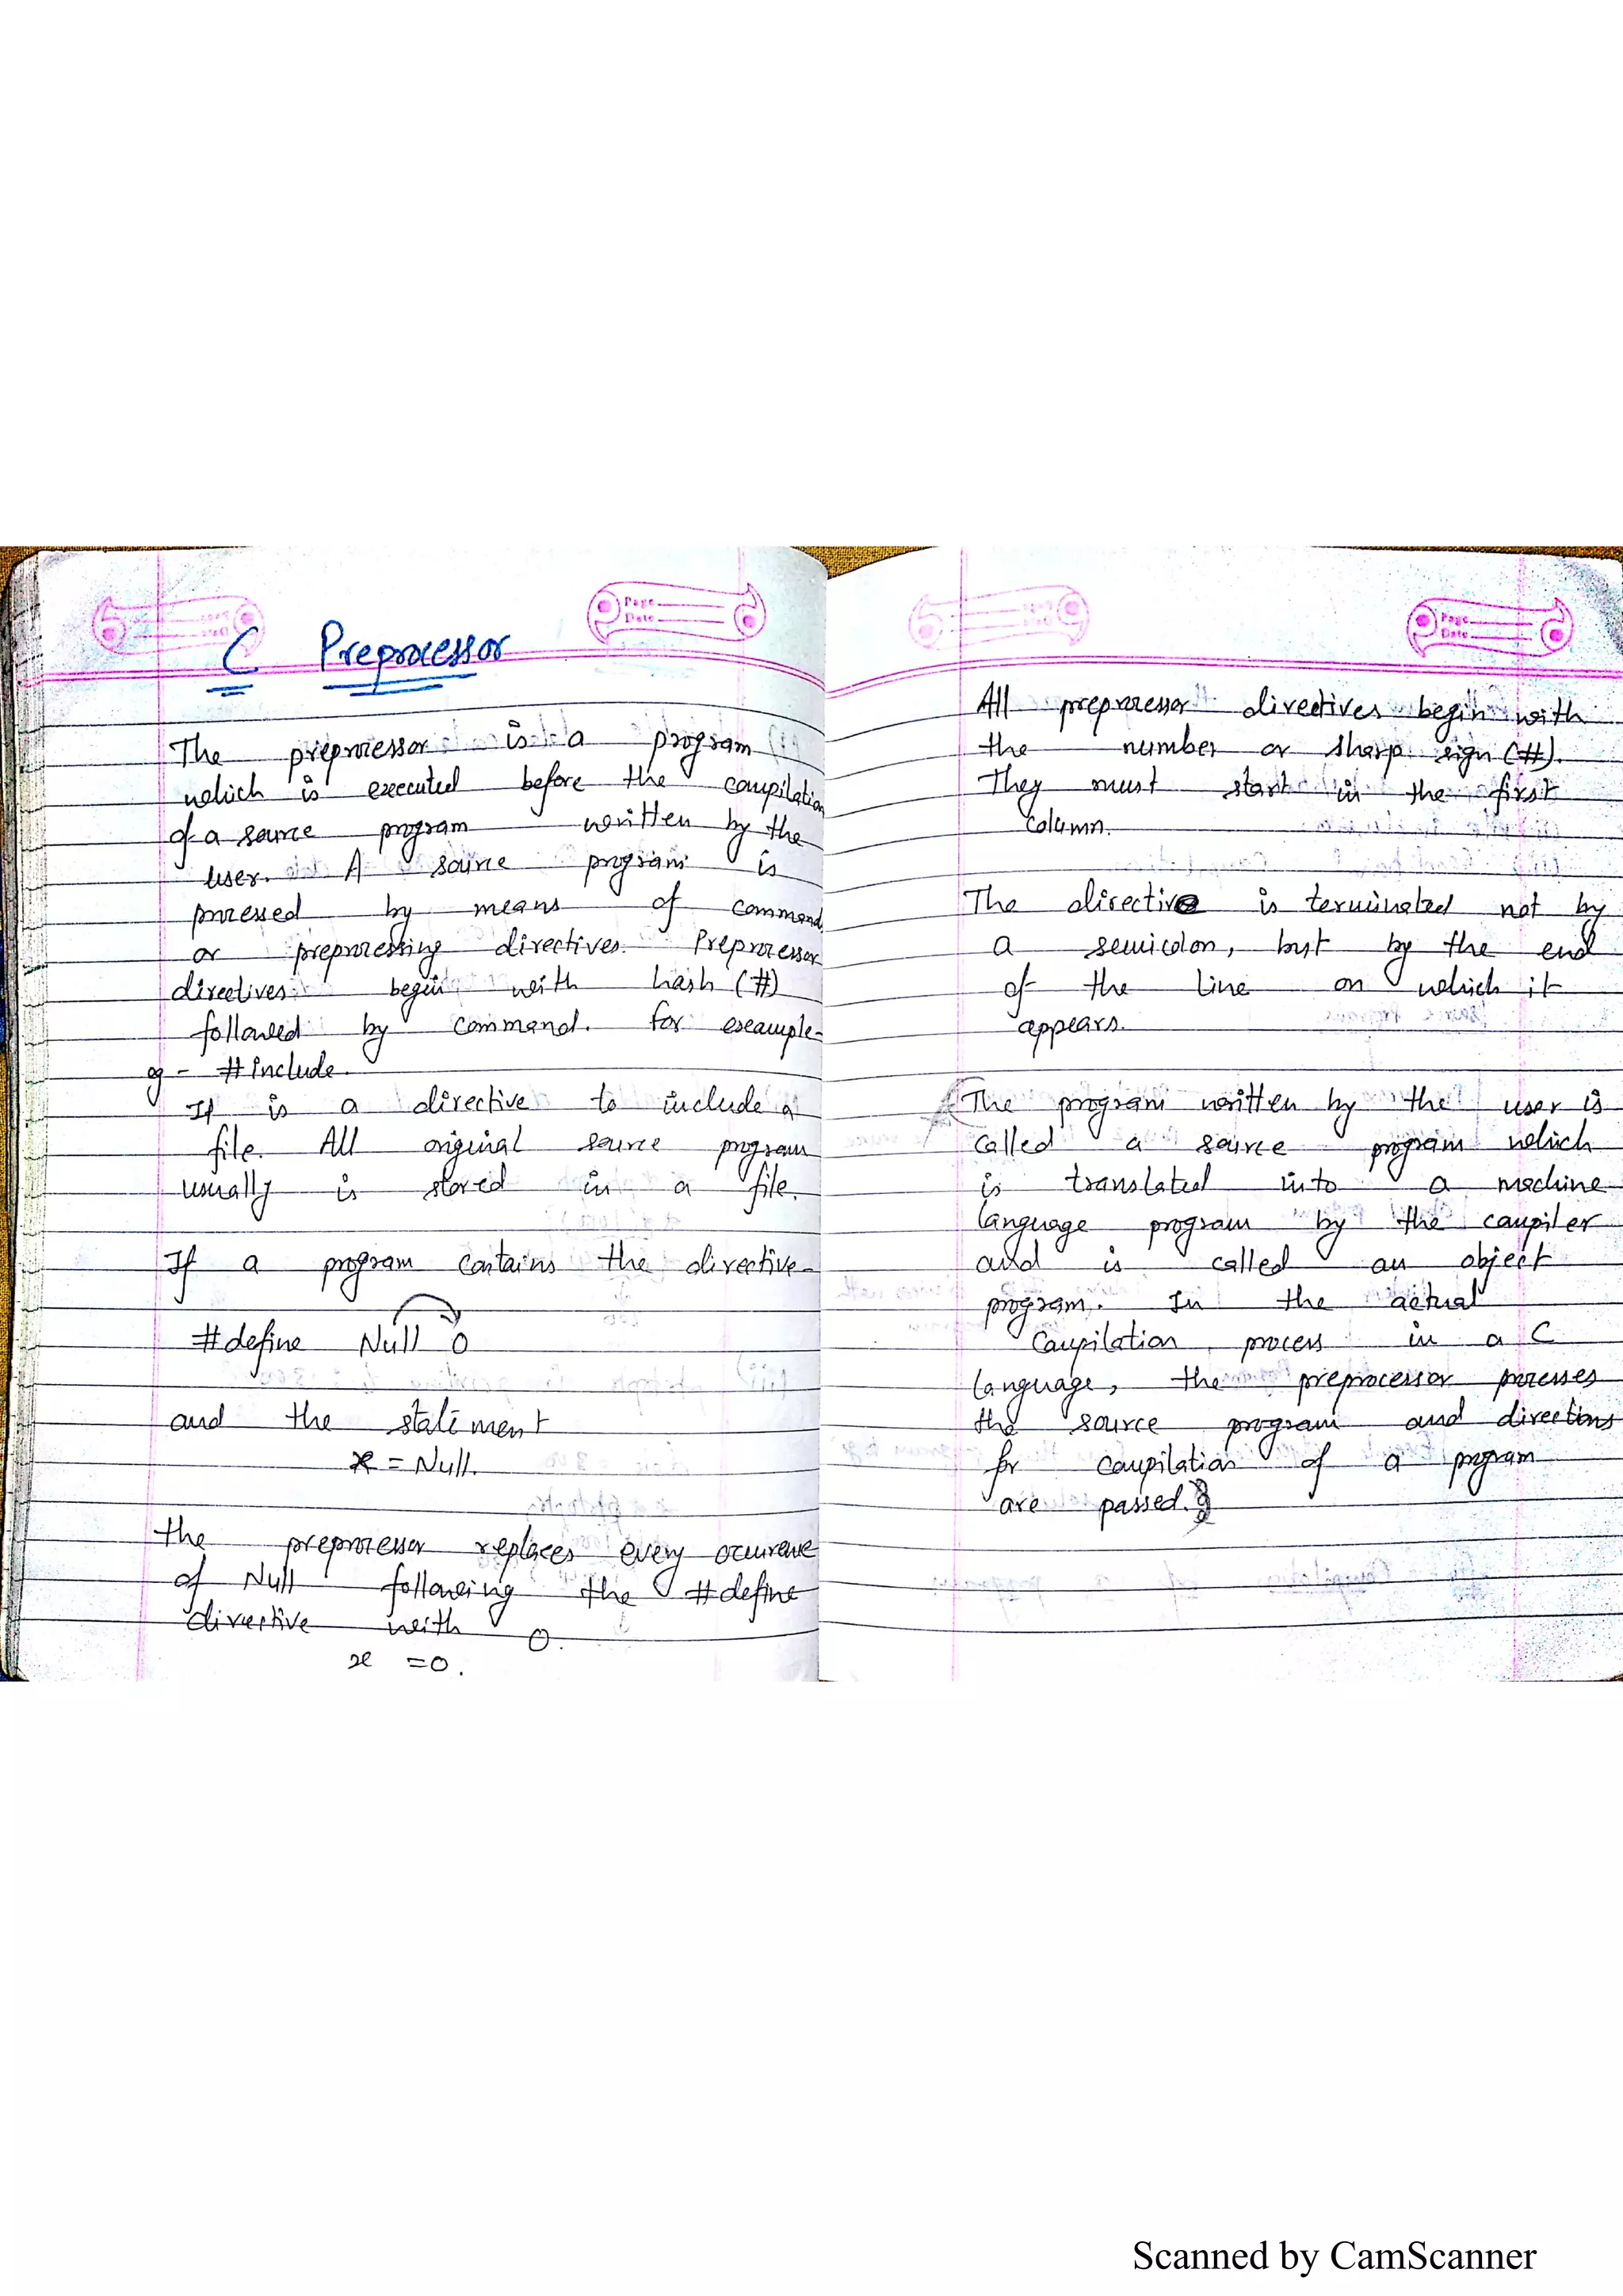 Page
Date
C Preprocessor
The preprocessor is a program
which is executed before the compilation
of a source program written by the
user. A source program is
processed by means of command
or preprocessing directives. Preprocessor
directives begin with hash (#)
followed by command. for example-
eg - #include.
It is a directive to include a
file. All original source program
usually is stored in a file.
If a program contains the directive-
#define Null 0
and the statement
x = Null.
the preprocessor replaces every occurence
of Null following the #define
directive with 0.
x = 0.
Page
Date
All preprocessor directives begin with
the number or sharp sign (#).
They must start in the first
column.
The directive is terminated not by
a semicolon, but by the end
of the line on which it
appears.
The program written by the user is
called a source program which
is translated into a machine
language program by the compiler
and is called an object
program. In the actual
Compilation process in a C
language, the preprocessor processes
the source program and directions
for compilation of a program
are passed.
Scanned by CamScanner